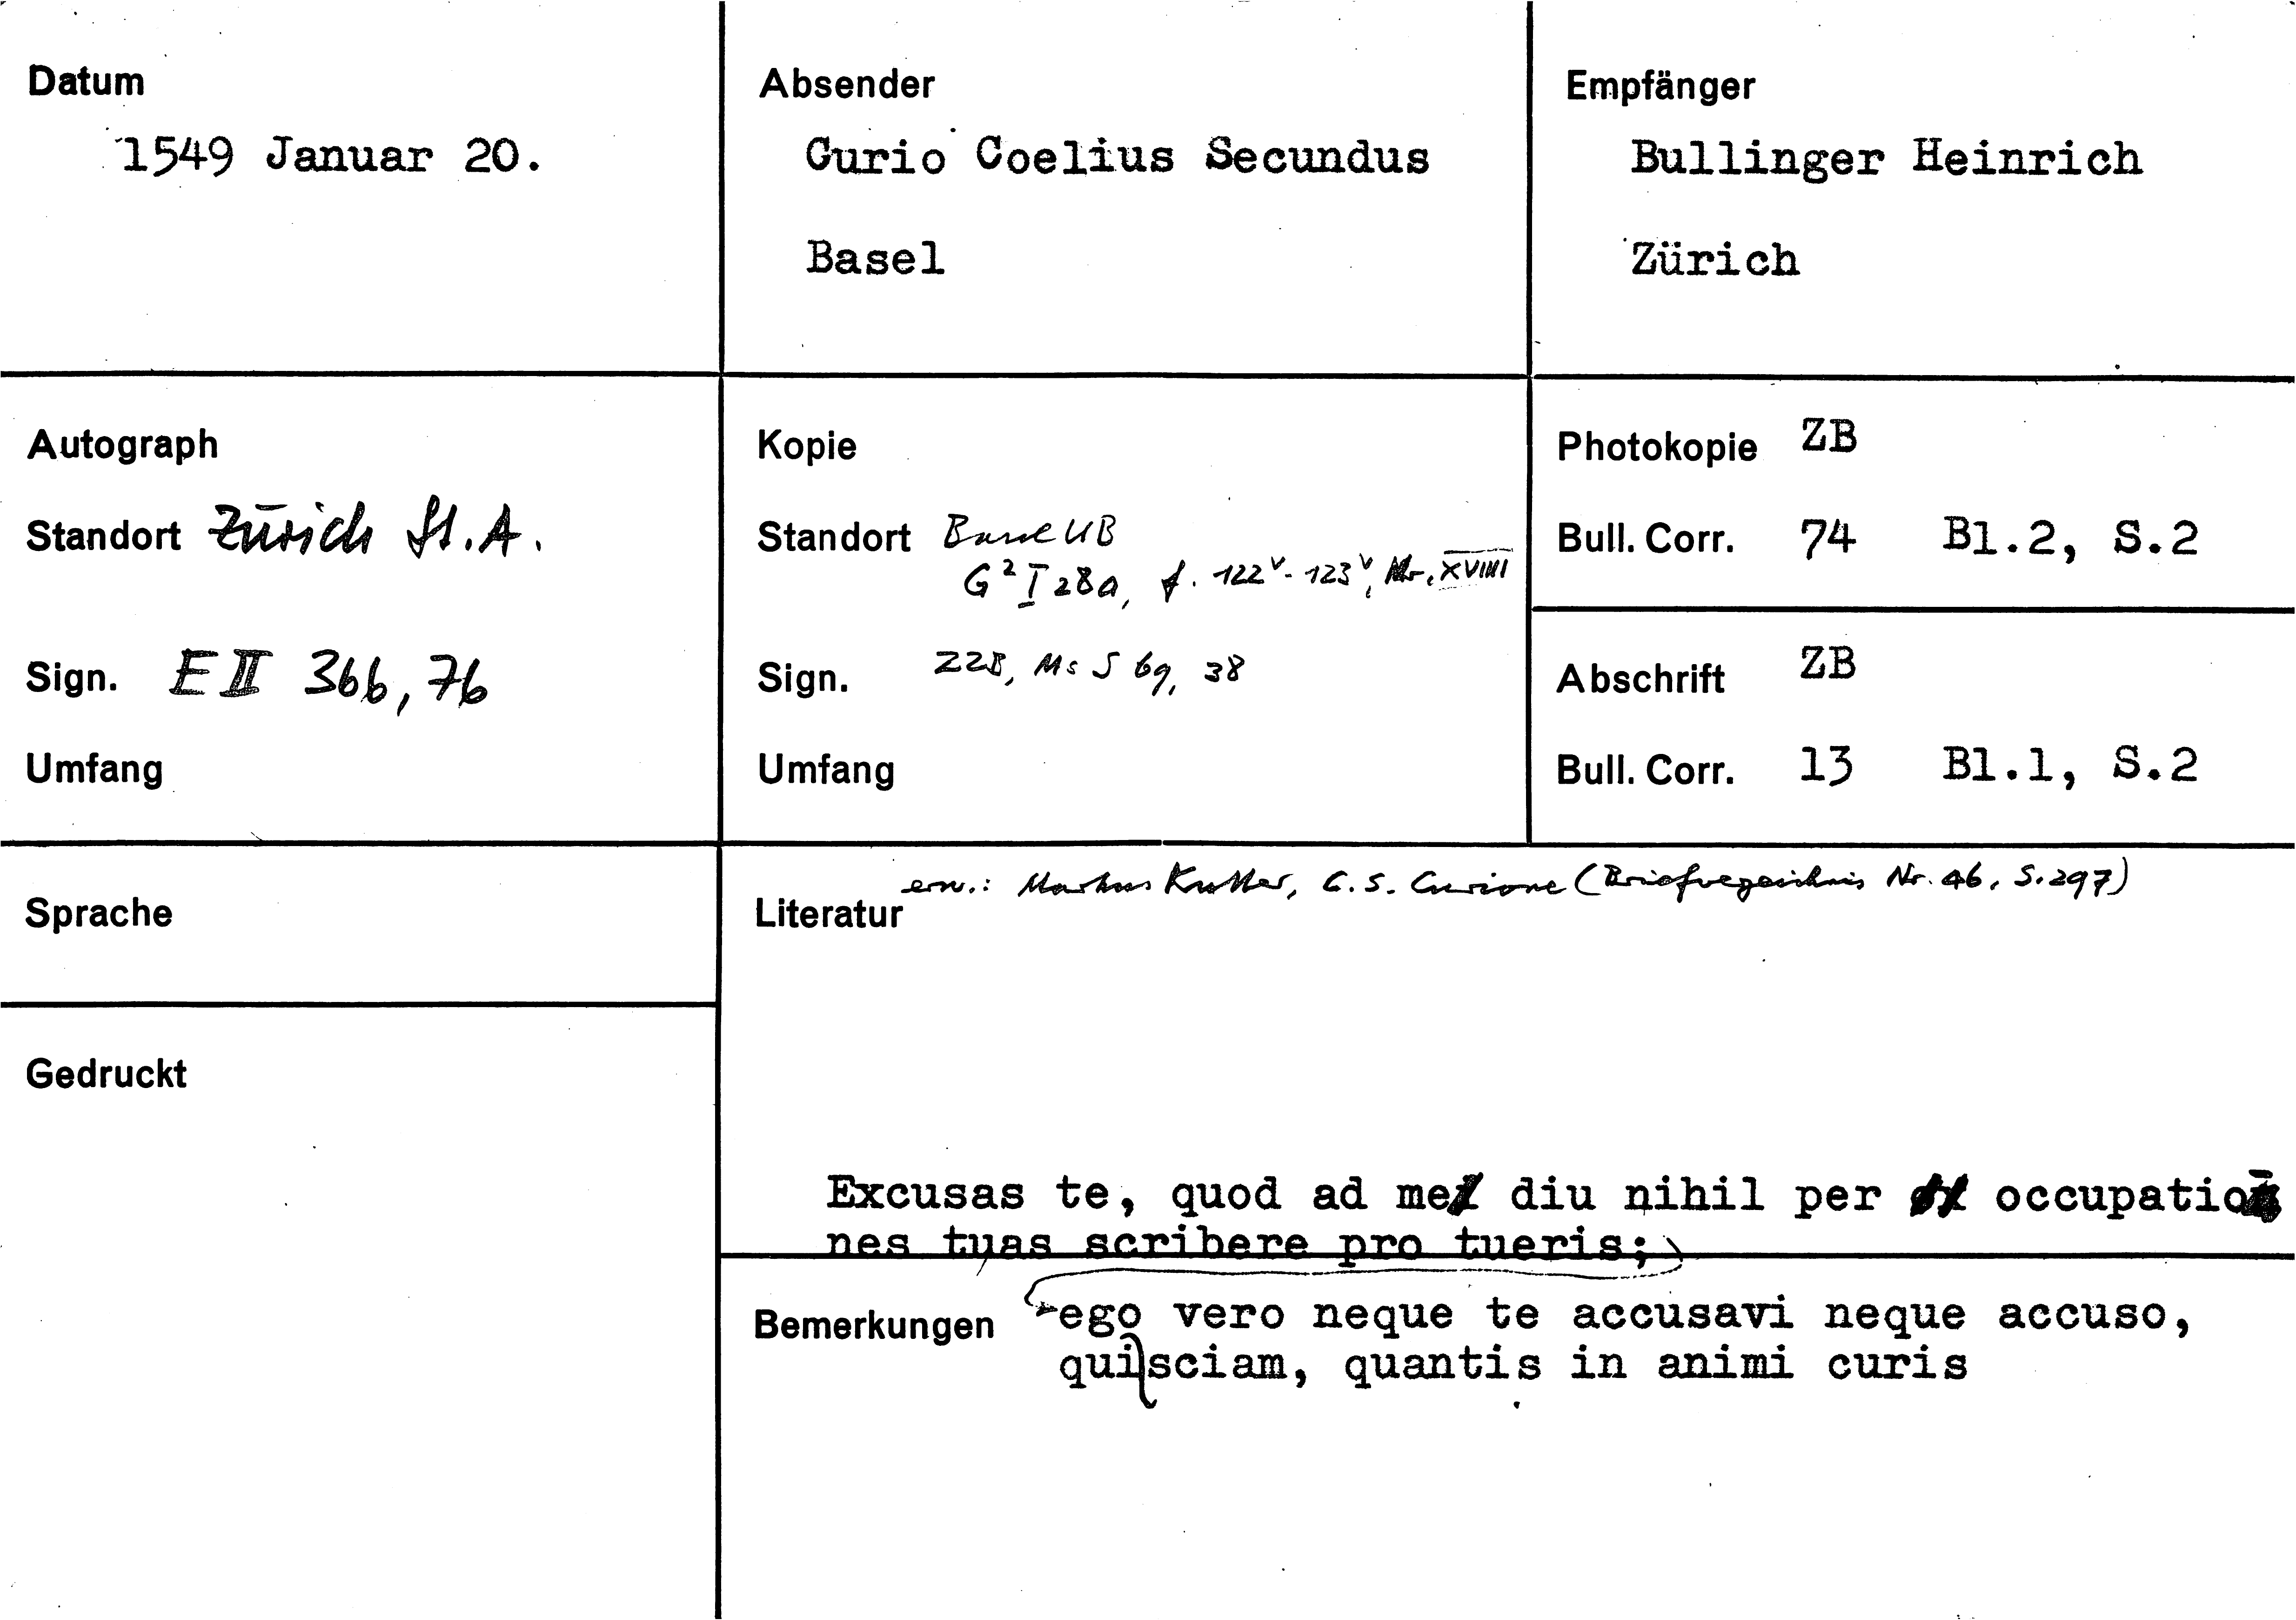 Datum
1549 Januar 20.
Absender
Curio Coelius Secundus
Basel
Empfänger
Bullinger Heinrich
Zürich
Autograph
Standort Zürich St.A.
Sign. E II 366, 76
Umfang
Kopie
Standort Basel UB
G² I 28a, f. 122ᵛ-123ᵛ, Nr. XVIIII
Sign. ZZB, Ms S 69, 38
Umfang
Photokopie ZB
Bull. Corr. 74 Bl.2, S.2
Abschrift ZB
Bull. Corr. 13 Bl.1, S.2
Sprache
Gedruckt
erw.: Markus Kutter, C. S. Curione (Briefvezeichnis Nr. 46, S. 297)
Literatur
Excusas te, quod ad me diu nihil per occupatio
nes tuas scribere pro tueris;
Bemerkungen ego vero neque te accusavi neque accuso,
qui sciam, quantis in animi curis